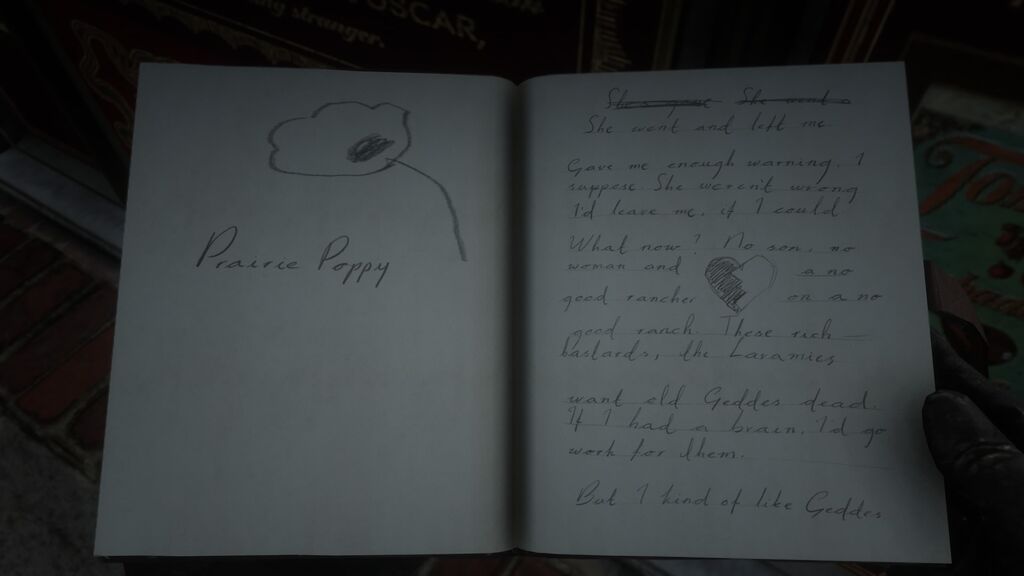 TUSCAR,
stranger.
Prairie Poppy
She's gone She went
She went and left me
Gave me enough warning. I
suppose She weren't wrong
I'd leave me, if I could
What now? No son, no
woman and a no
good rancher on a no
good ranch. These rich
bastards, the Laramies
want old Geddes dead.
If I had a brain, I'd go
work for them.
But I kind of like Geddes